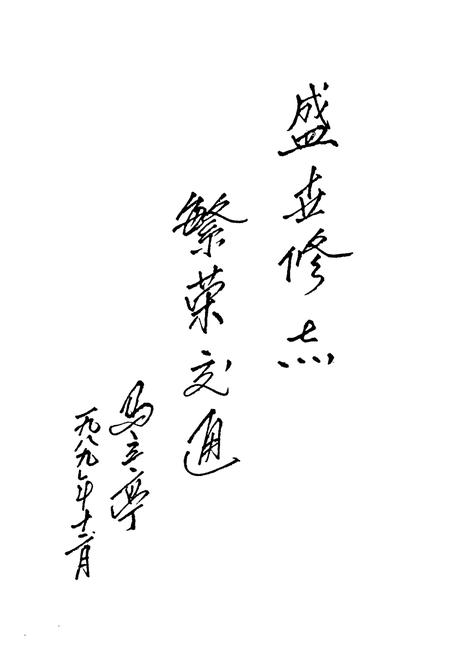 盛世修志
繁荣交通
马立亭
一九八九年十二月